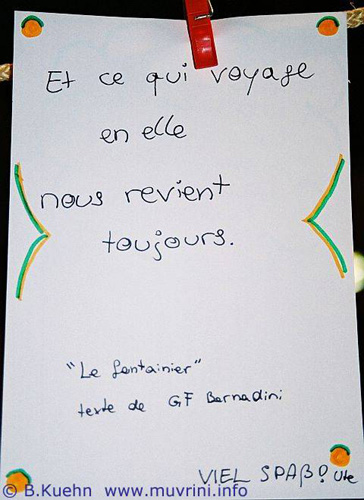 Et ce qui voyage
en elle
nous revient
toujours.
"Le fontainier"
texte de GF Bernadini
VIEL SPAß! Ute
© B.Kuehn www.muvrini.info